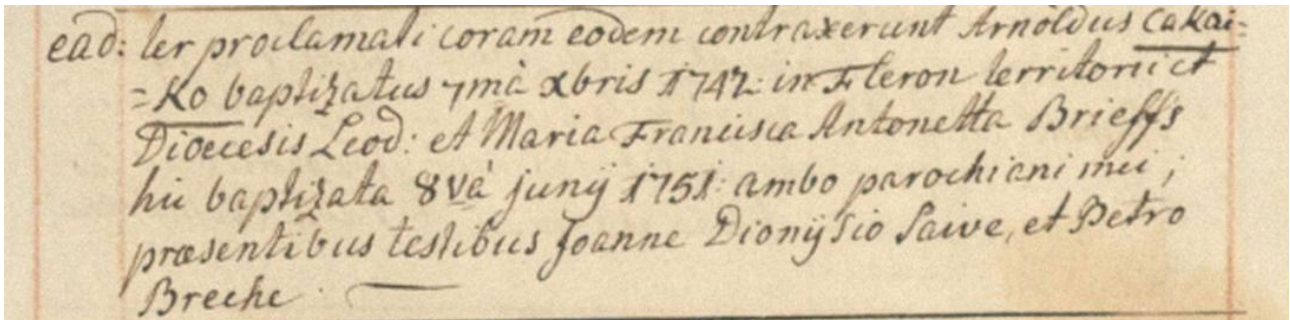 ead: ter proclamati coram eodem contraxerunt Arnoldus Cakai=
=Ko baptizatus 7mà xbris 1742: in Fleron territorii et
Dioecesis Leod: et Maria Francisca Antonetta Brieffs
hic baptizata 8và junij 1751: ambo parochiani mei;
præsentibus testibus Joanne Dionijsio Saive, et Petro
Breche